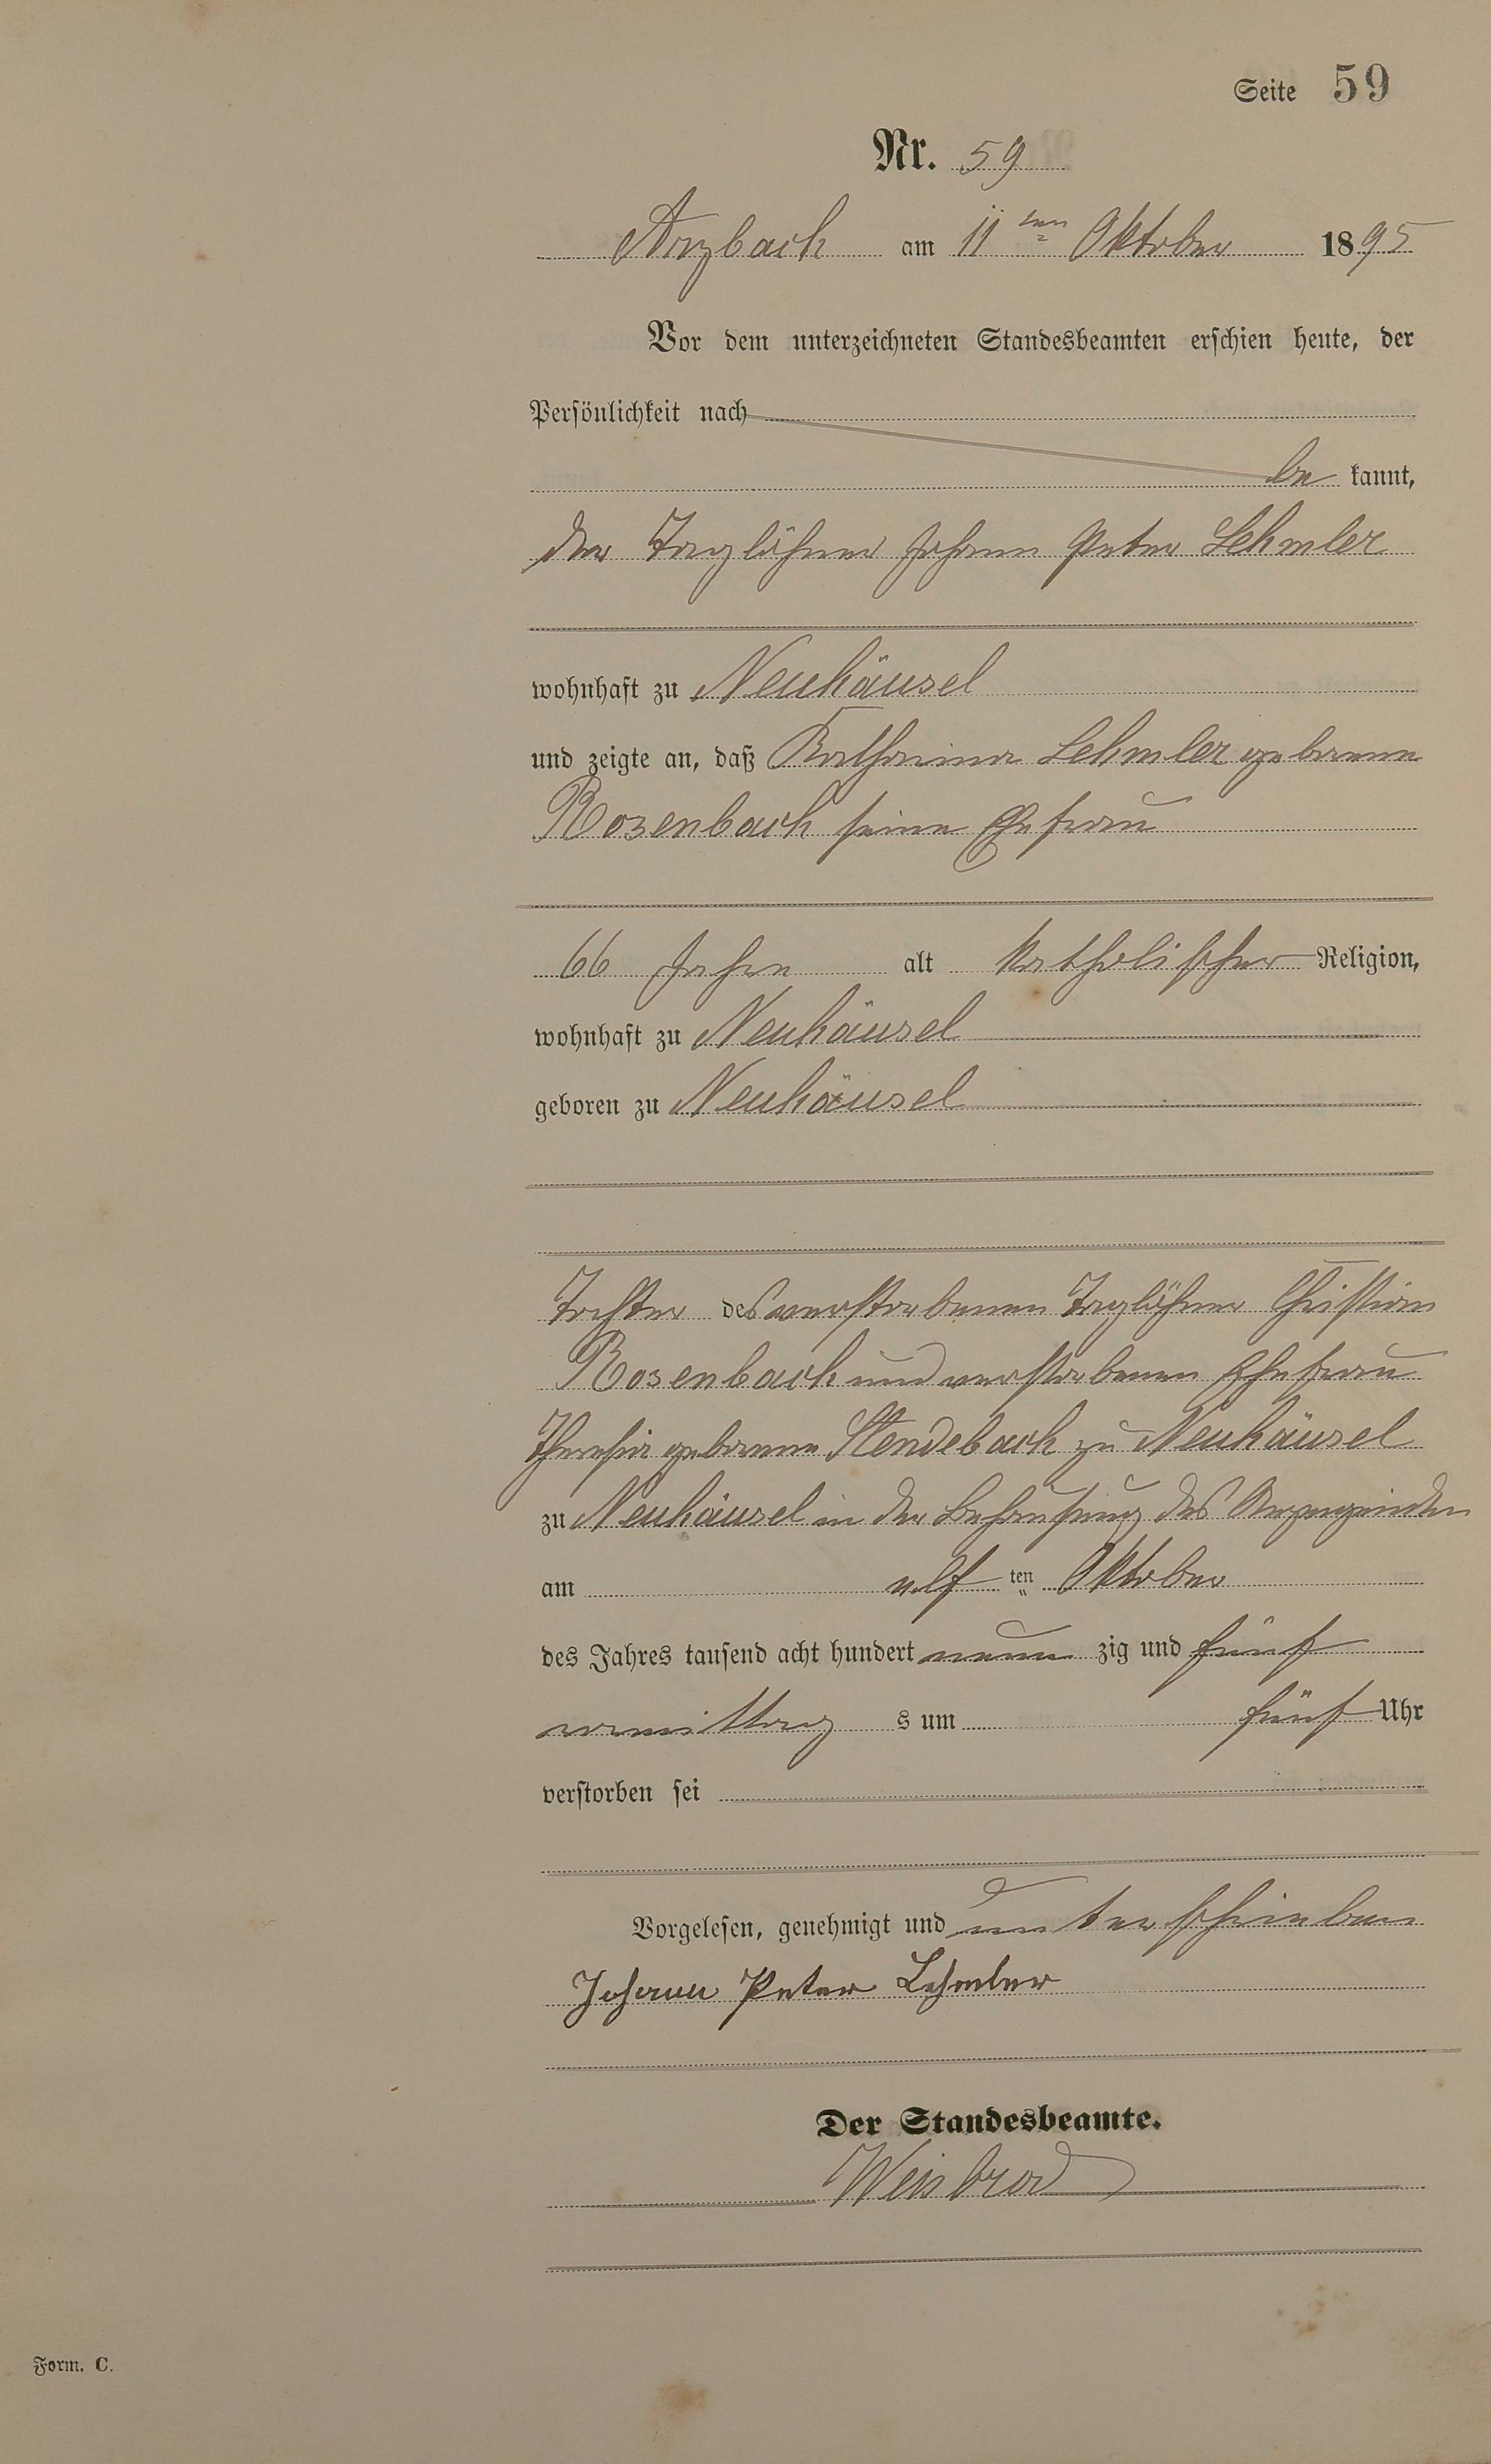 Seite 59
Nr. 59
Arzbach am 11ten Oktober 1895
Vor dem unterzeichneten Standesbeamten erschien heute, der
Persönlichkeit nach
be kannt,
der Taglöhner Johann Peter Lehmler
wohnhaft zu Neuhäusel
und zeigte an, daß Katharina Lehmler geborene
Rosenbach seine Ehefrau
66 Jahre alt katholischer Religion,
wohnhaft zu Neuhäusel
geboren zu Neuhäusel
Tochter des verstorbenen Taglöhner Christian
Rosenbach und verstorbenen Ehefrau
Theresia geborene Stendebach zu Neuhäusel
zu Neuhäusel in der Behausung des Anzeigenden
am elf ten Oktober
des Jahres tausend acht hundert neun zig und fünf
vormittag s um fünf Uhr
verstorben sei
Vorgelesen, genehmigt und unterschrieben
Johann Peter Lehmler
Der Standesbeamte.
Weisbrod
Form. C.